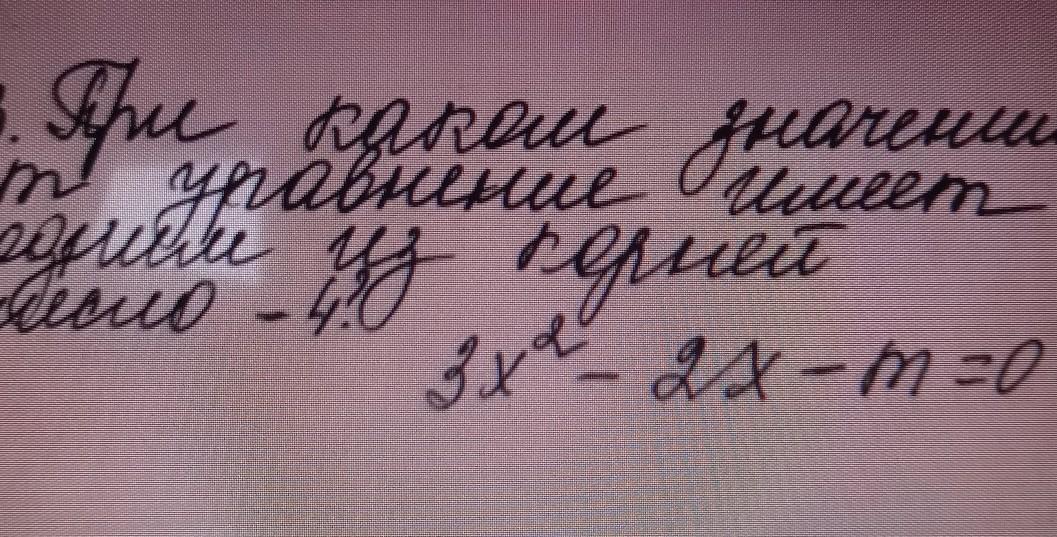 3. При каком значении
m уравнение имеет
одним из корней
число - 4?
3x² - 2x - m = 0